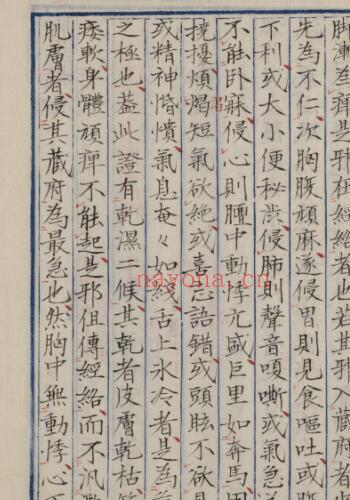 脚漸為痺是邪在經絡者也若其邪入藏府
先為不仁次胸腹頑麻遂侵胃則見食嘔吐或
下利或大小便秘澁侵肺則聲音嗄嘶或氣急
不能卧寐侵心則膻中動悸亢盛巨里如奔馬
撓擾煩渴短氣欲絶或喜忘語錯或頭眩不欲
或精神惛憒氣息奄々如綫舌上氷冷者是為
之極也蓋此證有乾濕二候其乾者皮膚乾枯
痿軟身體頑痺不能起是邪但傳經絡而不汎
肌膚者侵其藏府為最急也然胸中無動悸心
nayona.cn